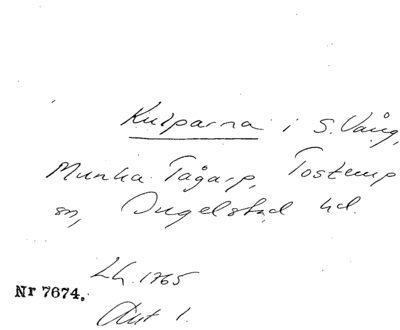 Kulparna i S. Vång,
Munka Tågarp, Tosterup
sn, Ingelstad hd.
LH. 1765
Nr 7674.
Akt 1.